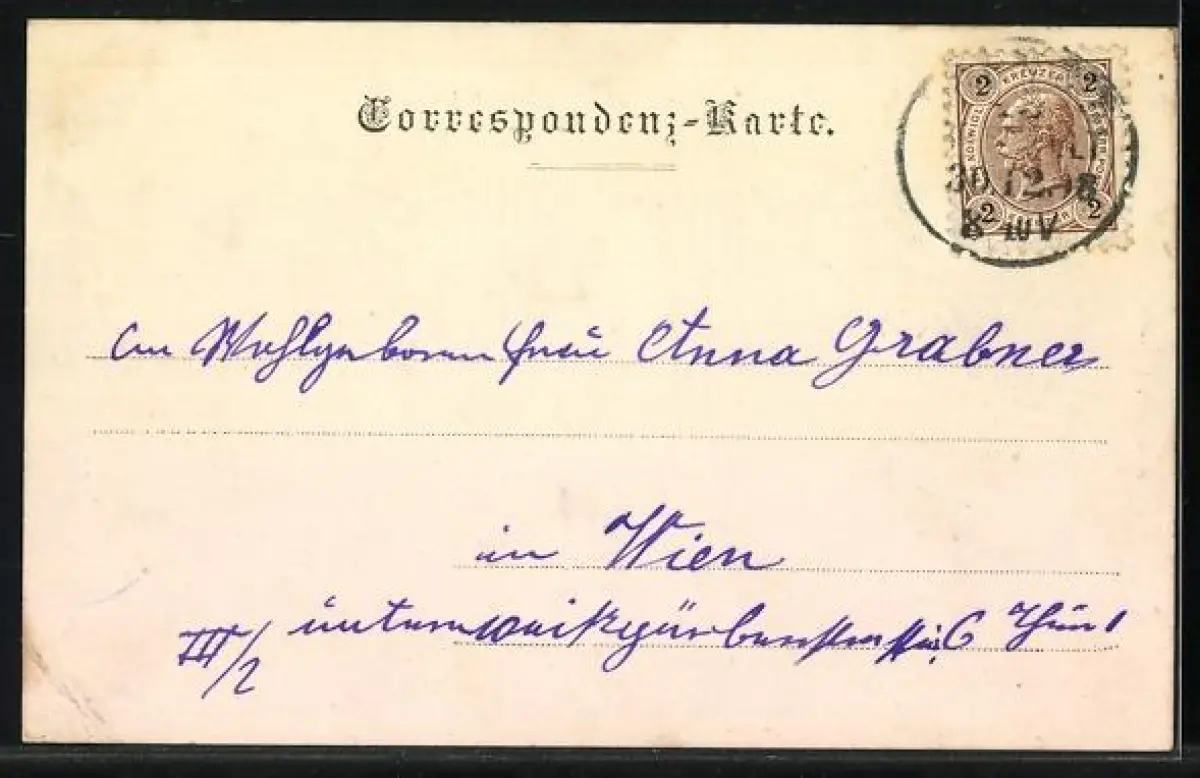 Correspondenz-Karte.
2 KREUZER 2
2 2
30.12.98
8 10 V
An Wohlgeboren Frau Anna Grabner
in Wien
III/2 6 Thür 1